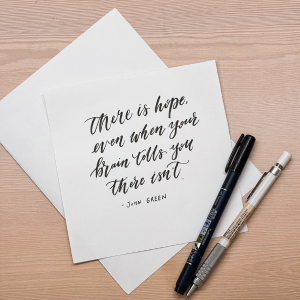 there is hope,
even when your
brain tells you
there isn't.
- JOHN GREEN